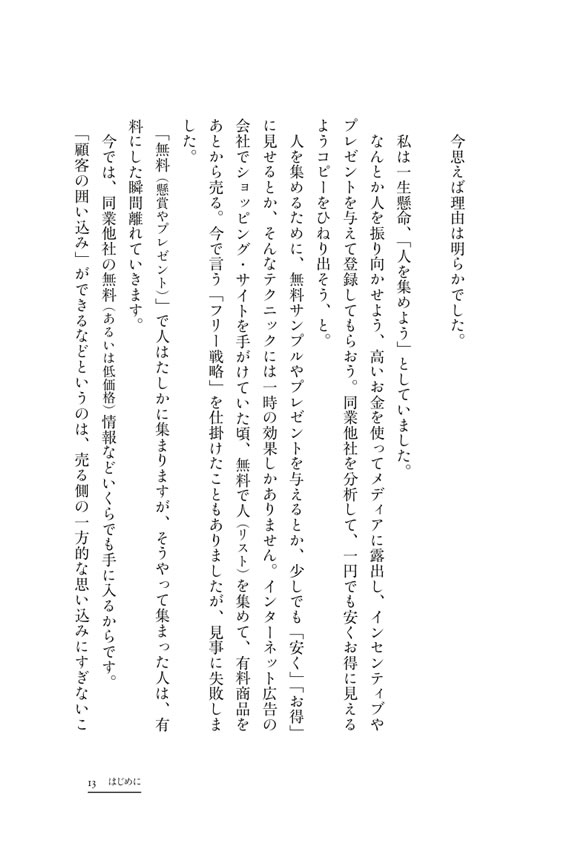 今思えば理由は明らかでした。
私は一生懸命、「人を集めよう」としていました。
なんとか人を振り向かせよう、高いお金を使ってメディアに露出し、インセンティブや
プレゼントを与えて登録してもらおう。同業他社を分析して、一円でも安くお得に見える
ようコピーをひねり出そう、と。
人を集めるために、無料サンプルやプレゼントを与えるとか、少しでも「安く」「お得」
に見せるとか、そんなテクニックには一時の効果しかありません。インターネット広告の
会社でショッピング・サイトを手がけていた頃、無料で人（リスト）を集めて、有料商品を
あとから売る。今で言う「フリー戦略」を仕掛けたこともありましたが、見事に失敗しま
した。
「無料（懸賞やプレゼント）」で人はたしかに集まりますが、そうやって集まった人は、有
料にした瞬間離れていきます。
今では、同業他社の無料（あるいは低価格）情報などいくらでも手に入るからです。
「顧客の囲い込み」ができるなどというのは、売る側の一方的な思い込みにすぎないこ
13 はじめに